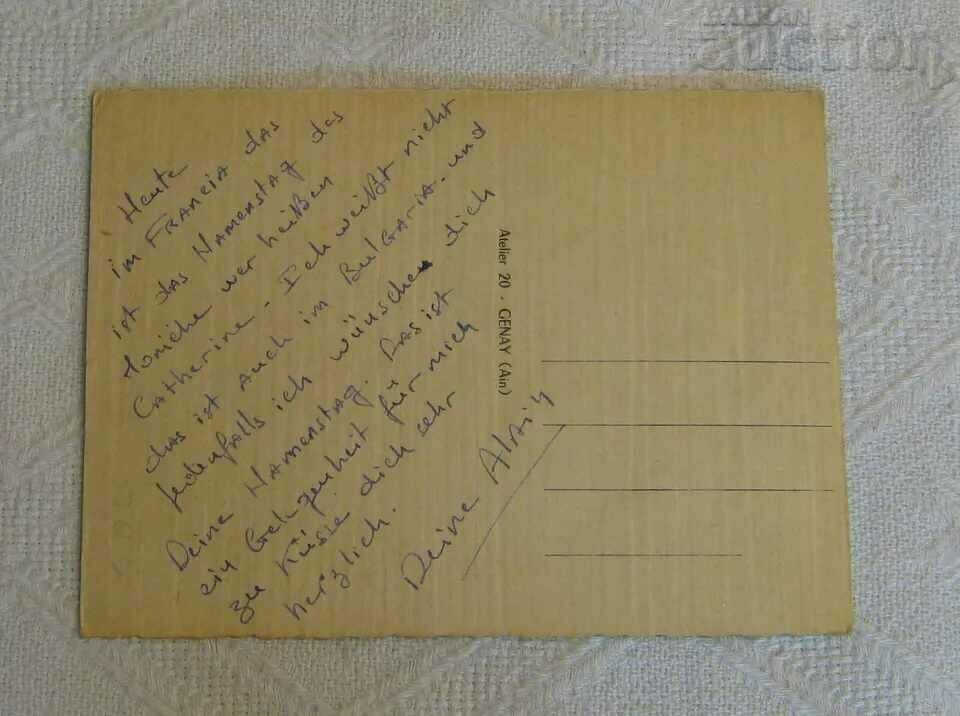 Heute
im FRANCIA das
ist das Namenstag das
wer heißen
Catherine - Ich weißt nicht
das ist auch im BulGARIA - und
Jedenfalls ich wünschen dich
Deine Namenstag. Das ist
ein Gelegenheit für mich
zu Küsse dich sehr
herzlich.
Deine Alain
Atelier 20 - GENAY (Ain)
BALKAN
auction